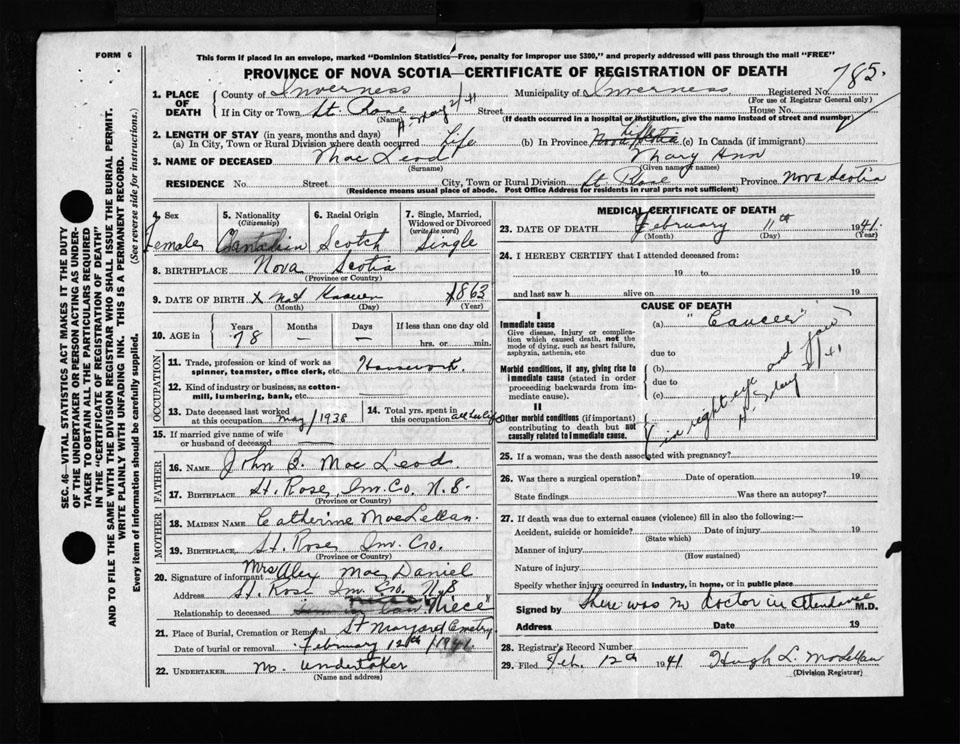 FORM 6
This form if placed in an envelope, marked "Dominion Statistics—Free, penalty for improper use $300," and properly addressed will pass through the mail "FREE"
PROVINCE OF NOVA SCOTIA—CERTIFICATE OF REGISTRATION OF DEATH
785.
1. PLACE OF DEATH
County of Inverness Municipality of Inverness Registered No.
(For use of Registrar General only)
If in City or Town St. Rose Street House No.
(Name) (If death occurred in a hospital or institution, give the name instead of street and number)
2. LENGTH OF STAY (in years, months and days)
(a) In City, Town or Rural Division where death occurred Life (b) In Province Life (c) In Canada (if immigrant)
3. NAME OF DECEASED Mac Leod Mary Ann
(Surname) (Given name or names)
RESIDENCE No. Street City, Town or Rural Division St. Rose Province Nova Scotia
(Residence means usual place of abode. Post Office Address for residents in rural parts not sufficient)
SEC. 46—VITAL STATISTICS ACT MAKES IT THE DUTY
OF THE UNDERTAKER OR PERSON ACTING AS UNDER-
TAKER TO OBTAIN ALL THE PARTICULARS REQUIRED
IN THE "CERTIFICATE OF REGISTRATION OF DEATH"
AND TO FILE THE SAME WITH THE DIVISION REGISTRAR WHO SHALL ISSUE THE BURIAL PERMIT.
WRITE PLAINLY WITH UNFADING INK. THIS IS A PERMANENT RECORD.
Every item of information should be carefully supplied. (See reverse side for instructions.)
Sex 5. Nationality 6. Racial Origin 7. Single, Married,
(Citizenship) Widowed or Divorced
(write the word)
Female Canadian Scotch Single
8. BIRTHPLACE Nova Scotia
(Province or Country)
9. DATE OF BIRTH Not Known 1863
(Month) (Day) (Year)
10. AGE in Years Months Days If less than one day old
78 — — hrs. or min.
OCCUPATION
11. Trade, profession or kind of work as
spinner, teamster, office clerk, etc. Housework.
12. Kind of industry or business, as cotton-
mill, lumbering, bank, etc.
13. Date deceased last worked
at this occupation May/1938
14. Total yrs. spent in
this occupation all her life
15. If married give name of wife
or husband of deceased
FATHER
16. NAME John B. Mac Leod.
17. BIRTHPLACE St. Rose, Inv. Co. N.S.
(Province or Country)
MOTHER
18. MAIDEN NAME Catherine MacLellan.
19. BIRTHPLACE St. Rose Inv. Co.
(Province or Country)
20. Signature of informant Mrs Alex Mac Daniel
Address St. Rose Inv. Co. N.S
Relationship to deceased Niece
21. Place of Burial, Cremation or Removal St Margard Cemetry
Date of burial or removal February 12th/1941
22. UNDERTAKER No. undertaker
(Name and address)
MEDICAL CERTIFICATE OF DEATH
23. DATE OF DEATH February 11th 1941.
(Month) (Day) (Year)
24. I HEREBY CERTIFY that I attended deceased from:
19 to 19
and last saw h alive on 19
CAUSE OF DEATH
I
Immediate cause
Give disease, injury or complica-
tion which caused death, not the
mode of dying, such as heart failure,
asphyxia, asthenia, etc
(a) "Cancer"
due to
Morbid conditions, if any, giving rise to
immediate cause (stated in order
proceeding backwards from im-
mediate cause).
(b)
due to
(c)
in right eye and jaw
II
Other morbid conditions (if important)
contributing to death but not
causally related to immediate cause.
25. If a woman, was the death associated with pregnancy?
26. Was there a surgical operation? Date of operation 19
State findings Was there an autopsy?
27. If death was due to external causes (violence) fill in also the following:—
Accident, suicide or homicide? Date of injury 19
(State which)
Manner of injury
(How sustained)
Nature of injury
Specify whether injury occurred in industry, in home, or in public place
Signed by There was no doctor in attendance M.D.
Address Date 19
28. Registrar's Record Number
29. Filed Feb. 12th 1941 Hugh L. McLellan
(Division Registrar)